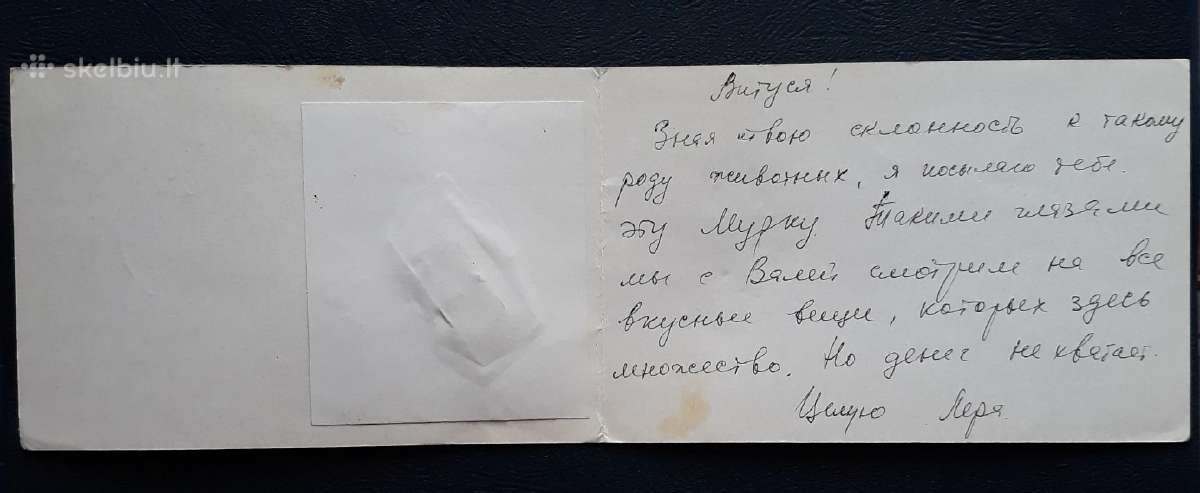 skelbiu.lt
Витуся!
Зная твою склонность к такому
роду животных, я посылаю тебе
эту Мурку. Такими глазами
мы с Валей смотрим на все
вкусные вещи, которых здесь
множество. Но денег не хватает.
Целую Лера